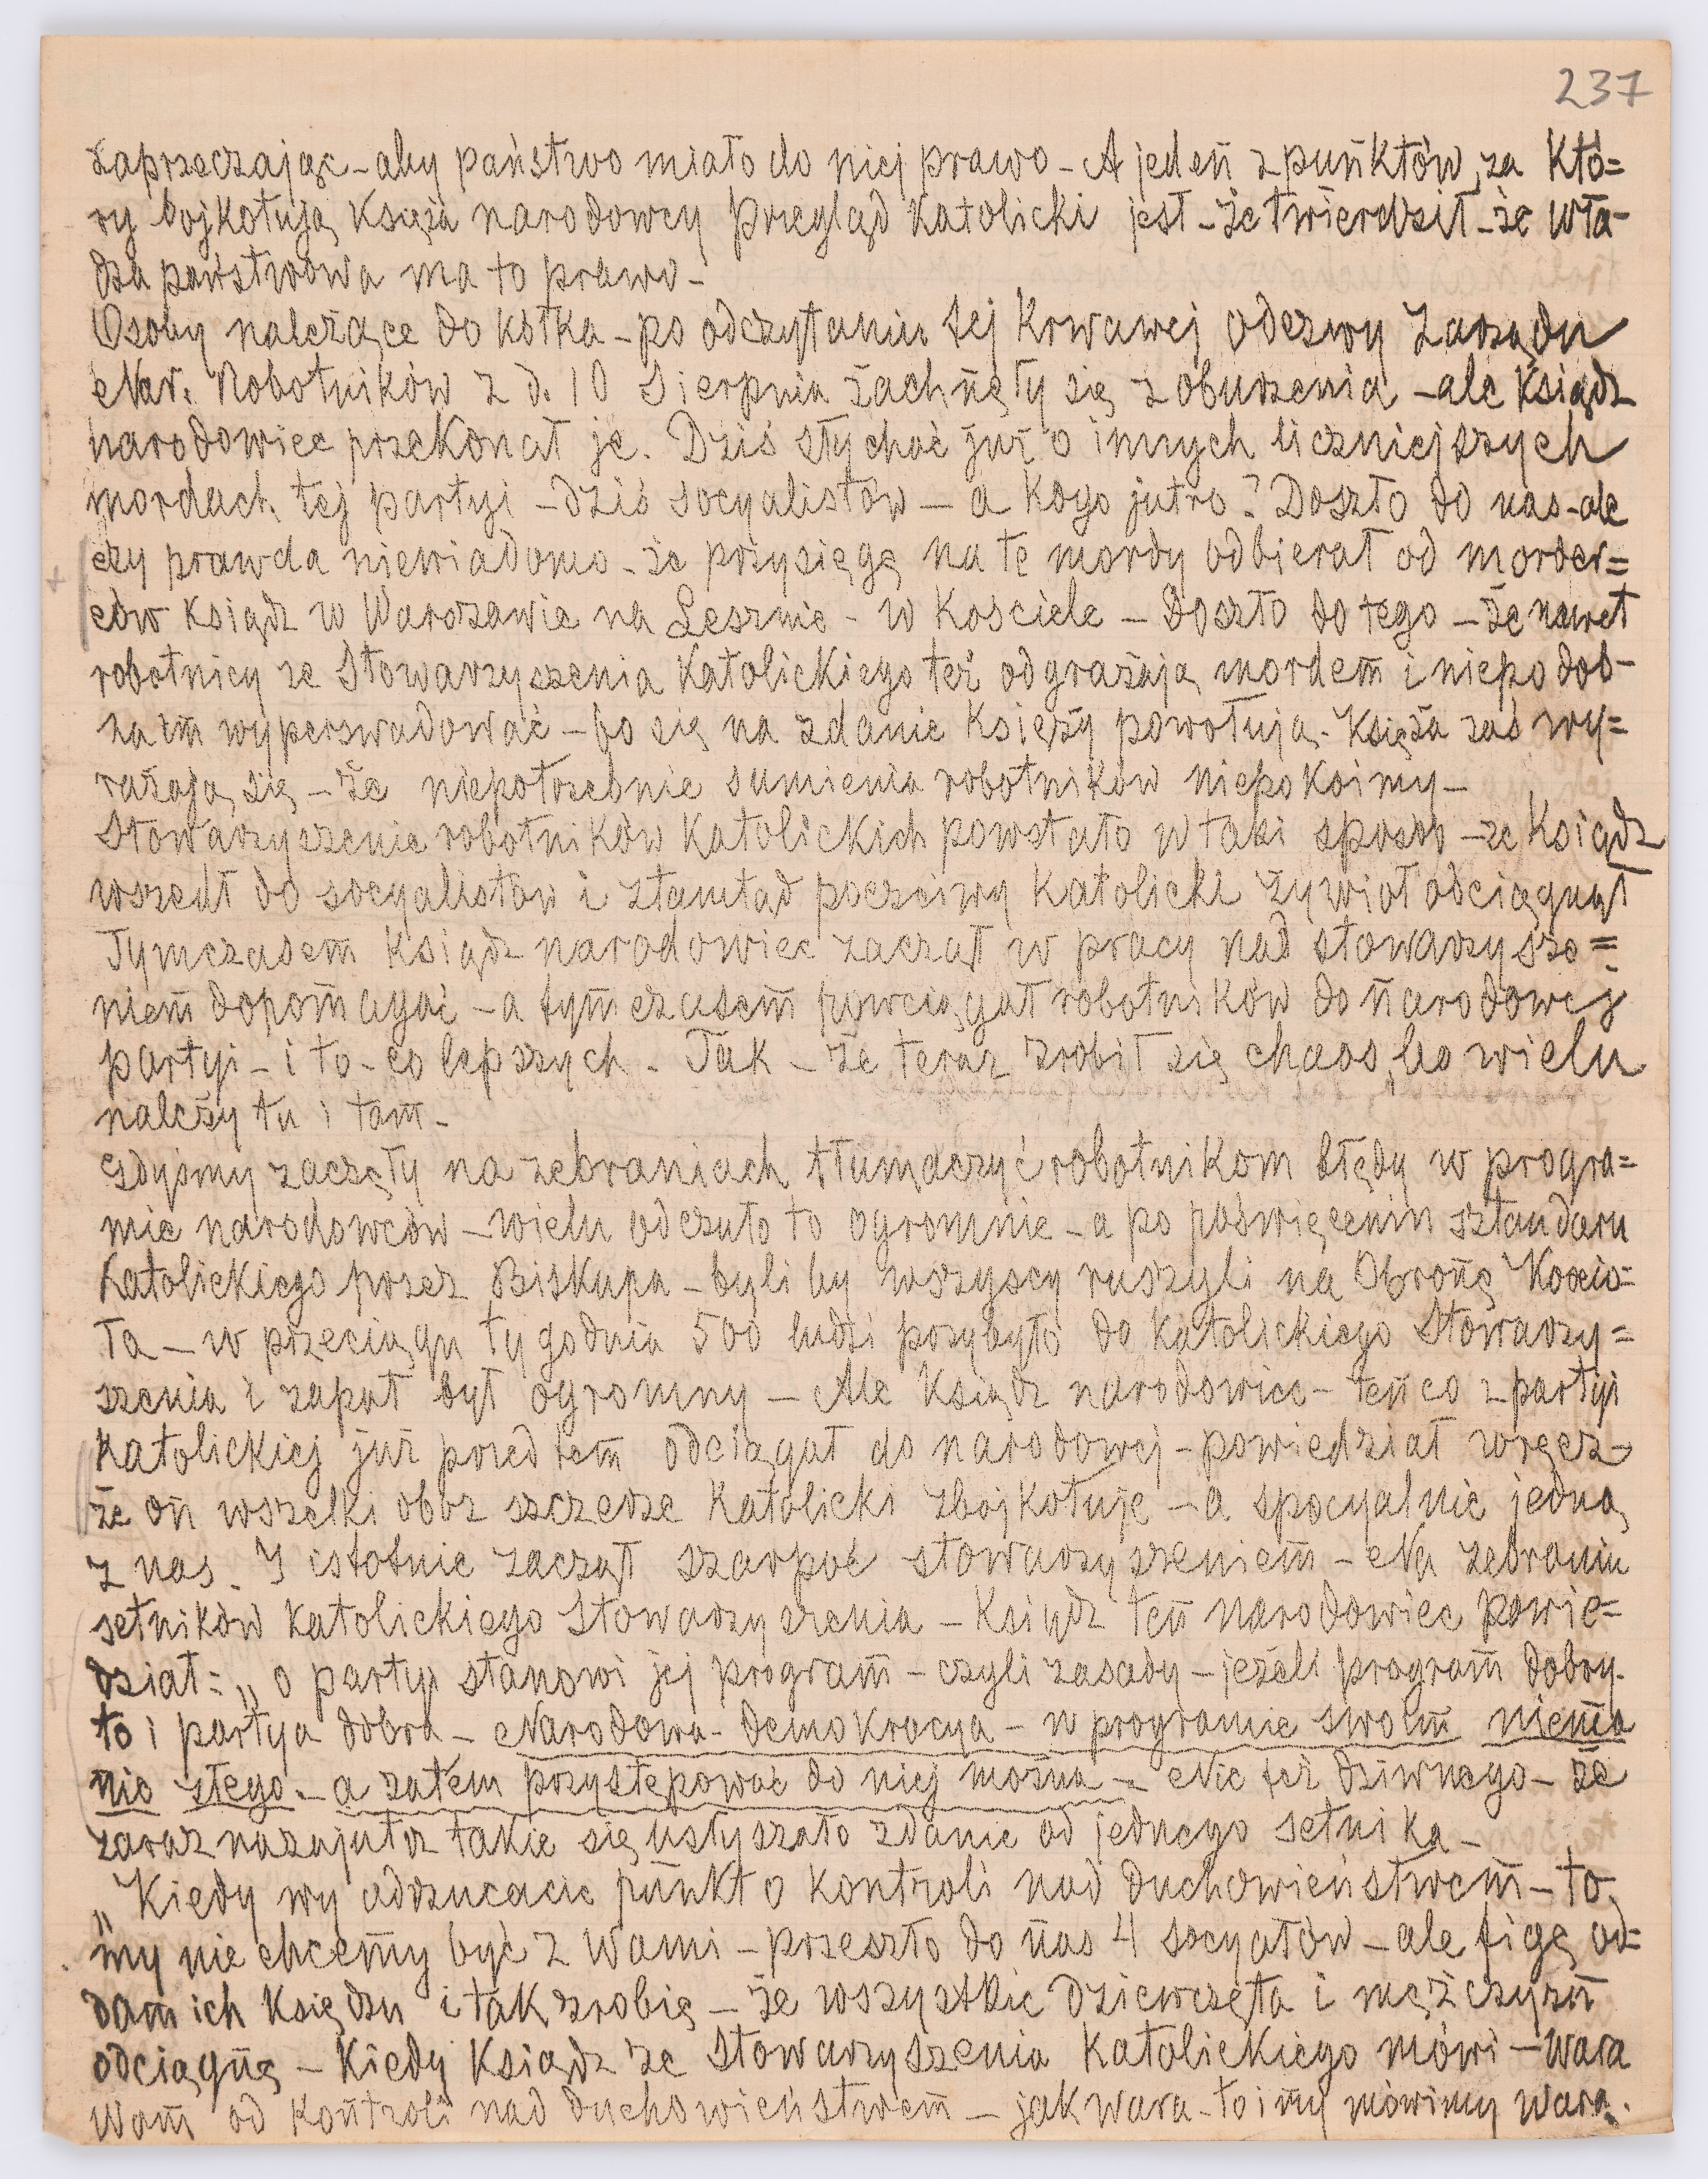 237
zaprzeczając - aby państwo miało do niej prawo - A jeden z punktów, za któ=
ry bojkotują Księża narodowcy Przegląd Katolicki jest - że twierdził - że wła-
dza państwowa ma to prawo -
Osoby należące do kółka - po odczytaniu tej krwawej odezwy Zarządu
Nar. Robotników z d. 10 Sierpnia żachnęły się z oburzenia - ale Ksiądz
narodowiec przekonał je. Dziś słychać już o innych liczniejszych
mordach tej partyi - dziś socyalistów - a kogo jutro? Doszło do nas - ale
czy prawda niewiadomo - że przysięgę na te mordy odbierał od morder=
ców Ksiądz w Warszawie na Lesznie - w Kościele - Doszło do tego - że nawet
robotnicy ze Stowarzyszenia Katolickiego też odgrażają mordem i niepodob-
na im wyperswadować - bo się na zdanie Księży powołują. Księża zaś wy=
rażają się - że niepotrzebnie sumienia robotników niepokoimy -
Stowarzyszenie robotników Katolickich powstało w taki sposób - że Ksiądz
wszedł do socyalistów i ztamtąd poczciwy Katolicki żywioł odciągnął
Tymczasem Ksiądz narodowiec zaczął w pracy nad stowarzysze=
niem dopomagać - a tymczasem powciągał robotników do narodowej
partyi - i to - co lepszych - Tak - że teraz zrobił się chaos, bo wielu
należy tu i tam -
Gdyśmy zaczęły na zebraniach tłumaczyć robotnikom błędy w progra=
mie narodowców - wielu odczuło to ogromnie - a po poświęceniu sztandaru
Katolickiego przez Biskupa - byliby wszyscy ruszyli na Obronę Kościo=
ła - w przeciągu tygodnia 500 ludzi przybyło do Katolickiego Stowarzy=
szenia i zapał był ogromny - Ale Ksiądz narodowiec - ten co z partyi
Katolickiej już przedtem odciągał do narodowej - powiedział wręcz -
że on wszelki obóz szczerze Katolicki zbojkotuje - a specyalnie jedną
z nas. I istotnie zaczął szarpać stowarzyszeniem - Na zebraniu
setników Katolickiego Stowarzyszenia - Ksiądz ten narodowiec powie=
dział: „o partyi stanowi jej program - czyli zasady - jeżeli program dobry -
to i partya dobra - Narodowa - Demokracya - w programie swoim niema
nic złego - a zatem przystępować do niej można - Nic też dziwnego - że
zaraz nazajutrz takie się usłyszało zdanie od jednego setnika -
„Kiedy wy odrzucacie punkt o kontroli nad duchowieństwem - to
my nie chcemy być z Wami - przeszło do nas 4 socyałów - ale figę od=
dam ich Księdzu i tak zrobię - że wszystkie dziewczęta i mężczyzn
odciągnę - Kiedy Ksiądz ze Stowarzyszenia Katolickiego mówi - wara
Wam od kontroli nad duchowieństwem - jak wara - to i my mówimy wara.